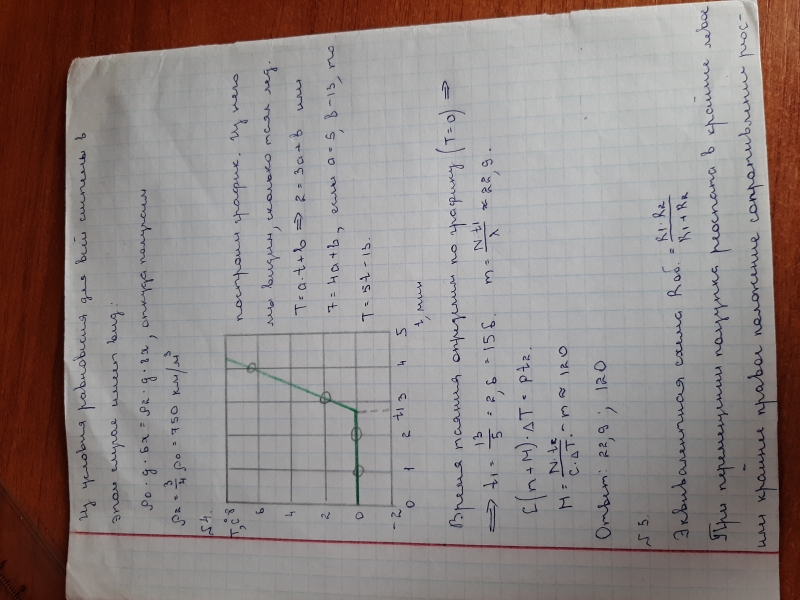 Из условия равновесия для всей системы в
этом случае имеет вид:
ρ0 · g · 6x = ρ2 · g · 8x, откуда получаем
ρ2 = 3/4 ρ0 = 750 кг/м³
№4.
T, c°
8
6
4
2
0
-2
0
1
2
t1
3
4
5
t, мин
построим график. Из него
мы видим, сколько таял лед.
T = a·t+b ⇒ 2 = 3a+b или
7 = 4a+b, если a = 5, b - 13, то
T = 5t - 13.
Время таяния определим по графику (T=0) ⇒
⇒ t1 = 13/5 = 2,6 = 156. m = Nt1/λ ≈ 22,9.
C(m+M)·ΔT = Pt2.
M = Nt2/C·ΔT - m ≈ 120
Ответ: 22,9; 120
№5.
Эквивалентная схема Rоб. = R1·R2/R1+R2
При перемещении ползунка реостата в крайне левое
или крайнее правое положение сопротивление реос-